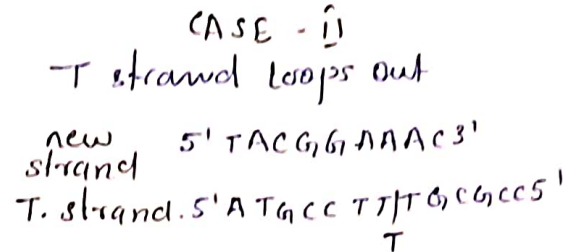 CASE - II
T strand Loops out
new strand 5' TACGGAAAC3'
T. strand. 5'ATGCC TTTGCGCC5'
T